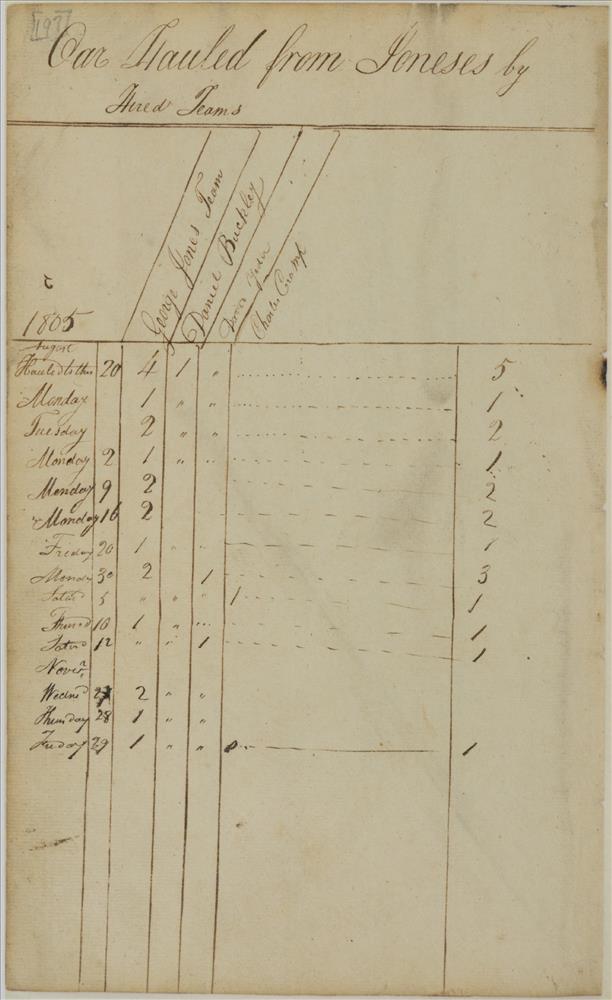 [197]
Oar Hauled from Joneses by
Hired Teams
George Jones Team
Daniel Buckley
Charles Cramp
1805
August
Hauled to this 20 4 1 " 5
Monday 1 " " 1
Tuesday 2 " " 2
Monday 2 1 " " 1
Monday 9 2 2
Monday 16 2 2
Friday 20 1 " " 1
Monday 30 2 1 3
Saturd 5 " " " 1 1
Thursd 10 1 " " 1
Saturd 12 " " 1 1
Nover
Wednd 27 2 " "
Thursday 28 1 " "
Friday 29 1 " " 1